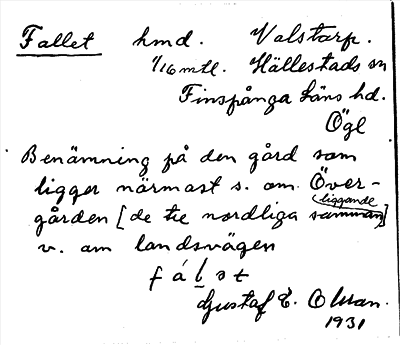 Fallet hmd. Valstarp.
1/16 mtl. Hällestads sn
Finspånga Läns hd.
Ögl
Benämning på den gård som
ligger närmast s. om Över-
gården [de tre nordliga samman] liggande
v. om landsvägen
f á l s t
Gustaf E. Olsson.
1931